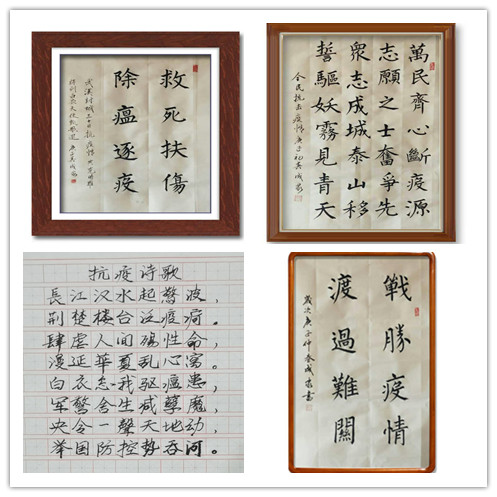 救死扶傷
除瘟逐疫
萬民齊心斷疫源
志願之士奮爭先
衆志成城泰山移
誓驅妖霧見青天
抗疫诗歌
長江汉水起驚波，
荆楚楼台泛疫疴。
肆虐人间祸性命，
漫延華夏乱心窝。
白衣忘我驱瘟患，
军警舍生减孽魔，
央令一聲天地动，
举国防控势吞河。
戰勝疫情
渡過難關
歲次庚子仲春